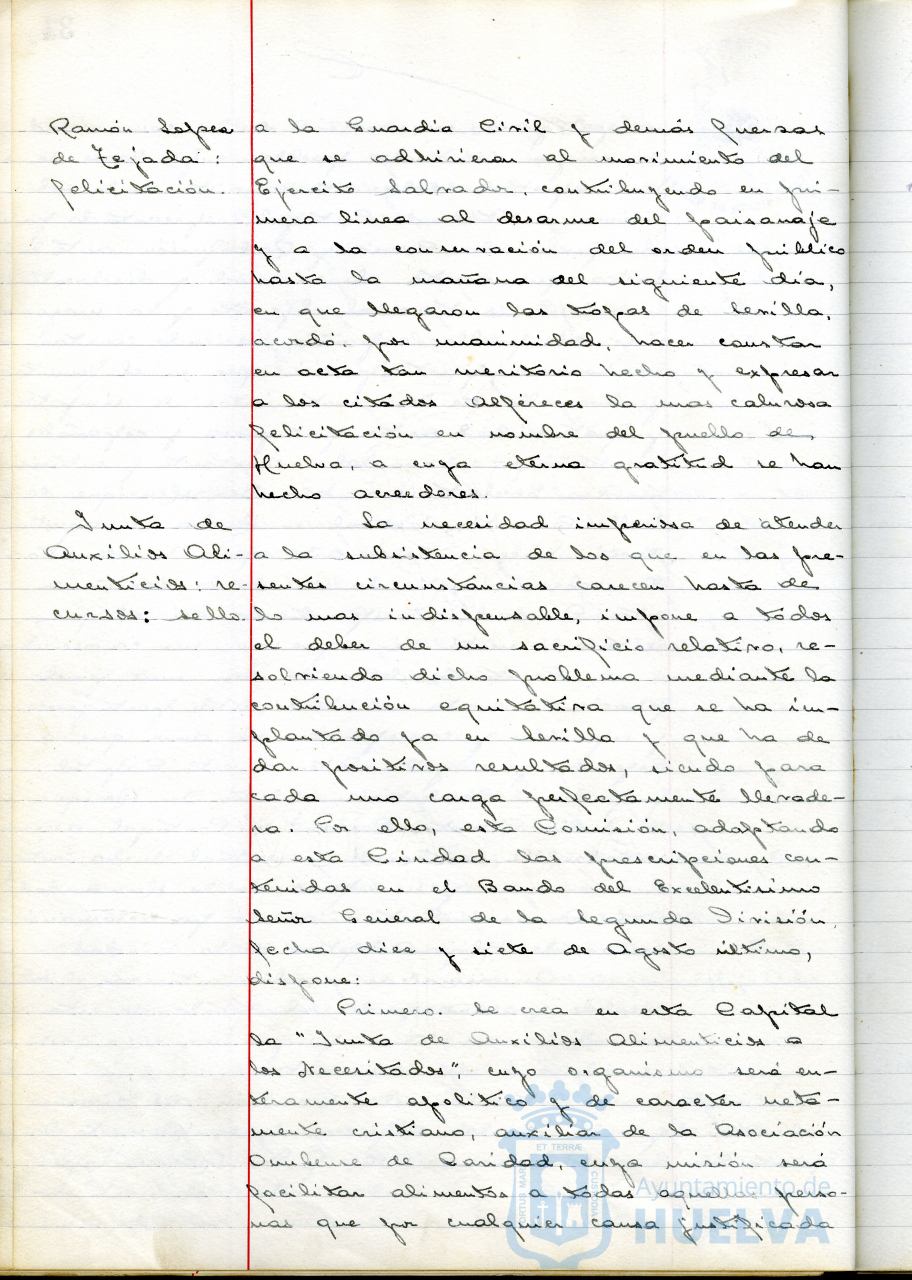 Ramón Lopez
de Tejada:
felicitación.
a la Guardia Civil y demás fuerzas
que se adhirieron al movimiento del
Ejercito Salvador, contribuyendo en pri-
mera linea al desarme del paisanaje
y a la conservación del orden público
hasta la mañana del siguiente día,
en que llegaron las tropas de Sevilla,
acordó, por unanimidad, hacer constar
en acta tan meritorio hecho y expresar
a los citados Alféreces la mas calurosa
felicitación en nombre del pueblo de
Huelva, a cuya eterna gratitud se han
hecho acreedores.
Junta de
Auxilios Ali-
menticios: re-
cursos: sello.
La necesidad imperiosa de atender
a la subsistencia de los que en las pre-
sentes circunstancias carecen hasta de
lo mas indispensable, impone a todos
el deber de un sacrificio relativo, re-
solviendo dicho problema mediante la
contribución equitativa que se ha im-
plantado ya en Sevilla y que ha de
dar positivos resultados, siendo para
cada uno carga perfectamente llevade-
ra. Por ello, esta Comisión, adaptando
a esta Ciudad las prescripciones con-
tenidas en el Bando del Excelentisimo
Señor General de la Segunda División,
fecha diez y siete de Agosto último,
dispone:
Primero. Se crea en esta Capital
la "Junta de Auxilios Alimenticios a
los Necesitados", cuyo organismo será en-
teramente apolítico y de caracter neta-
mente cristiano, auxiliar de la Asociación
Onubense de Caridad, cuya misión será
facilitar alimentos a todas aquellas perso-
nas que por cualquier causa justificada
PORTUS MARIS
ET TERRÆ
CUSTODIA
Ayuntamiento de
HUELVA